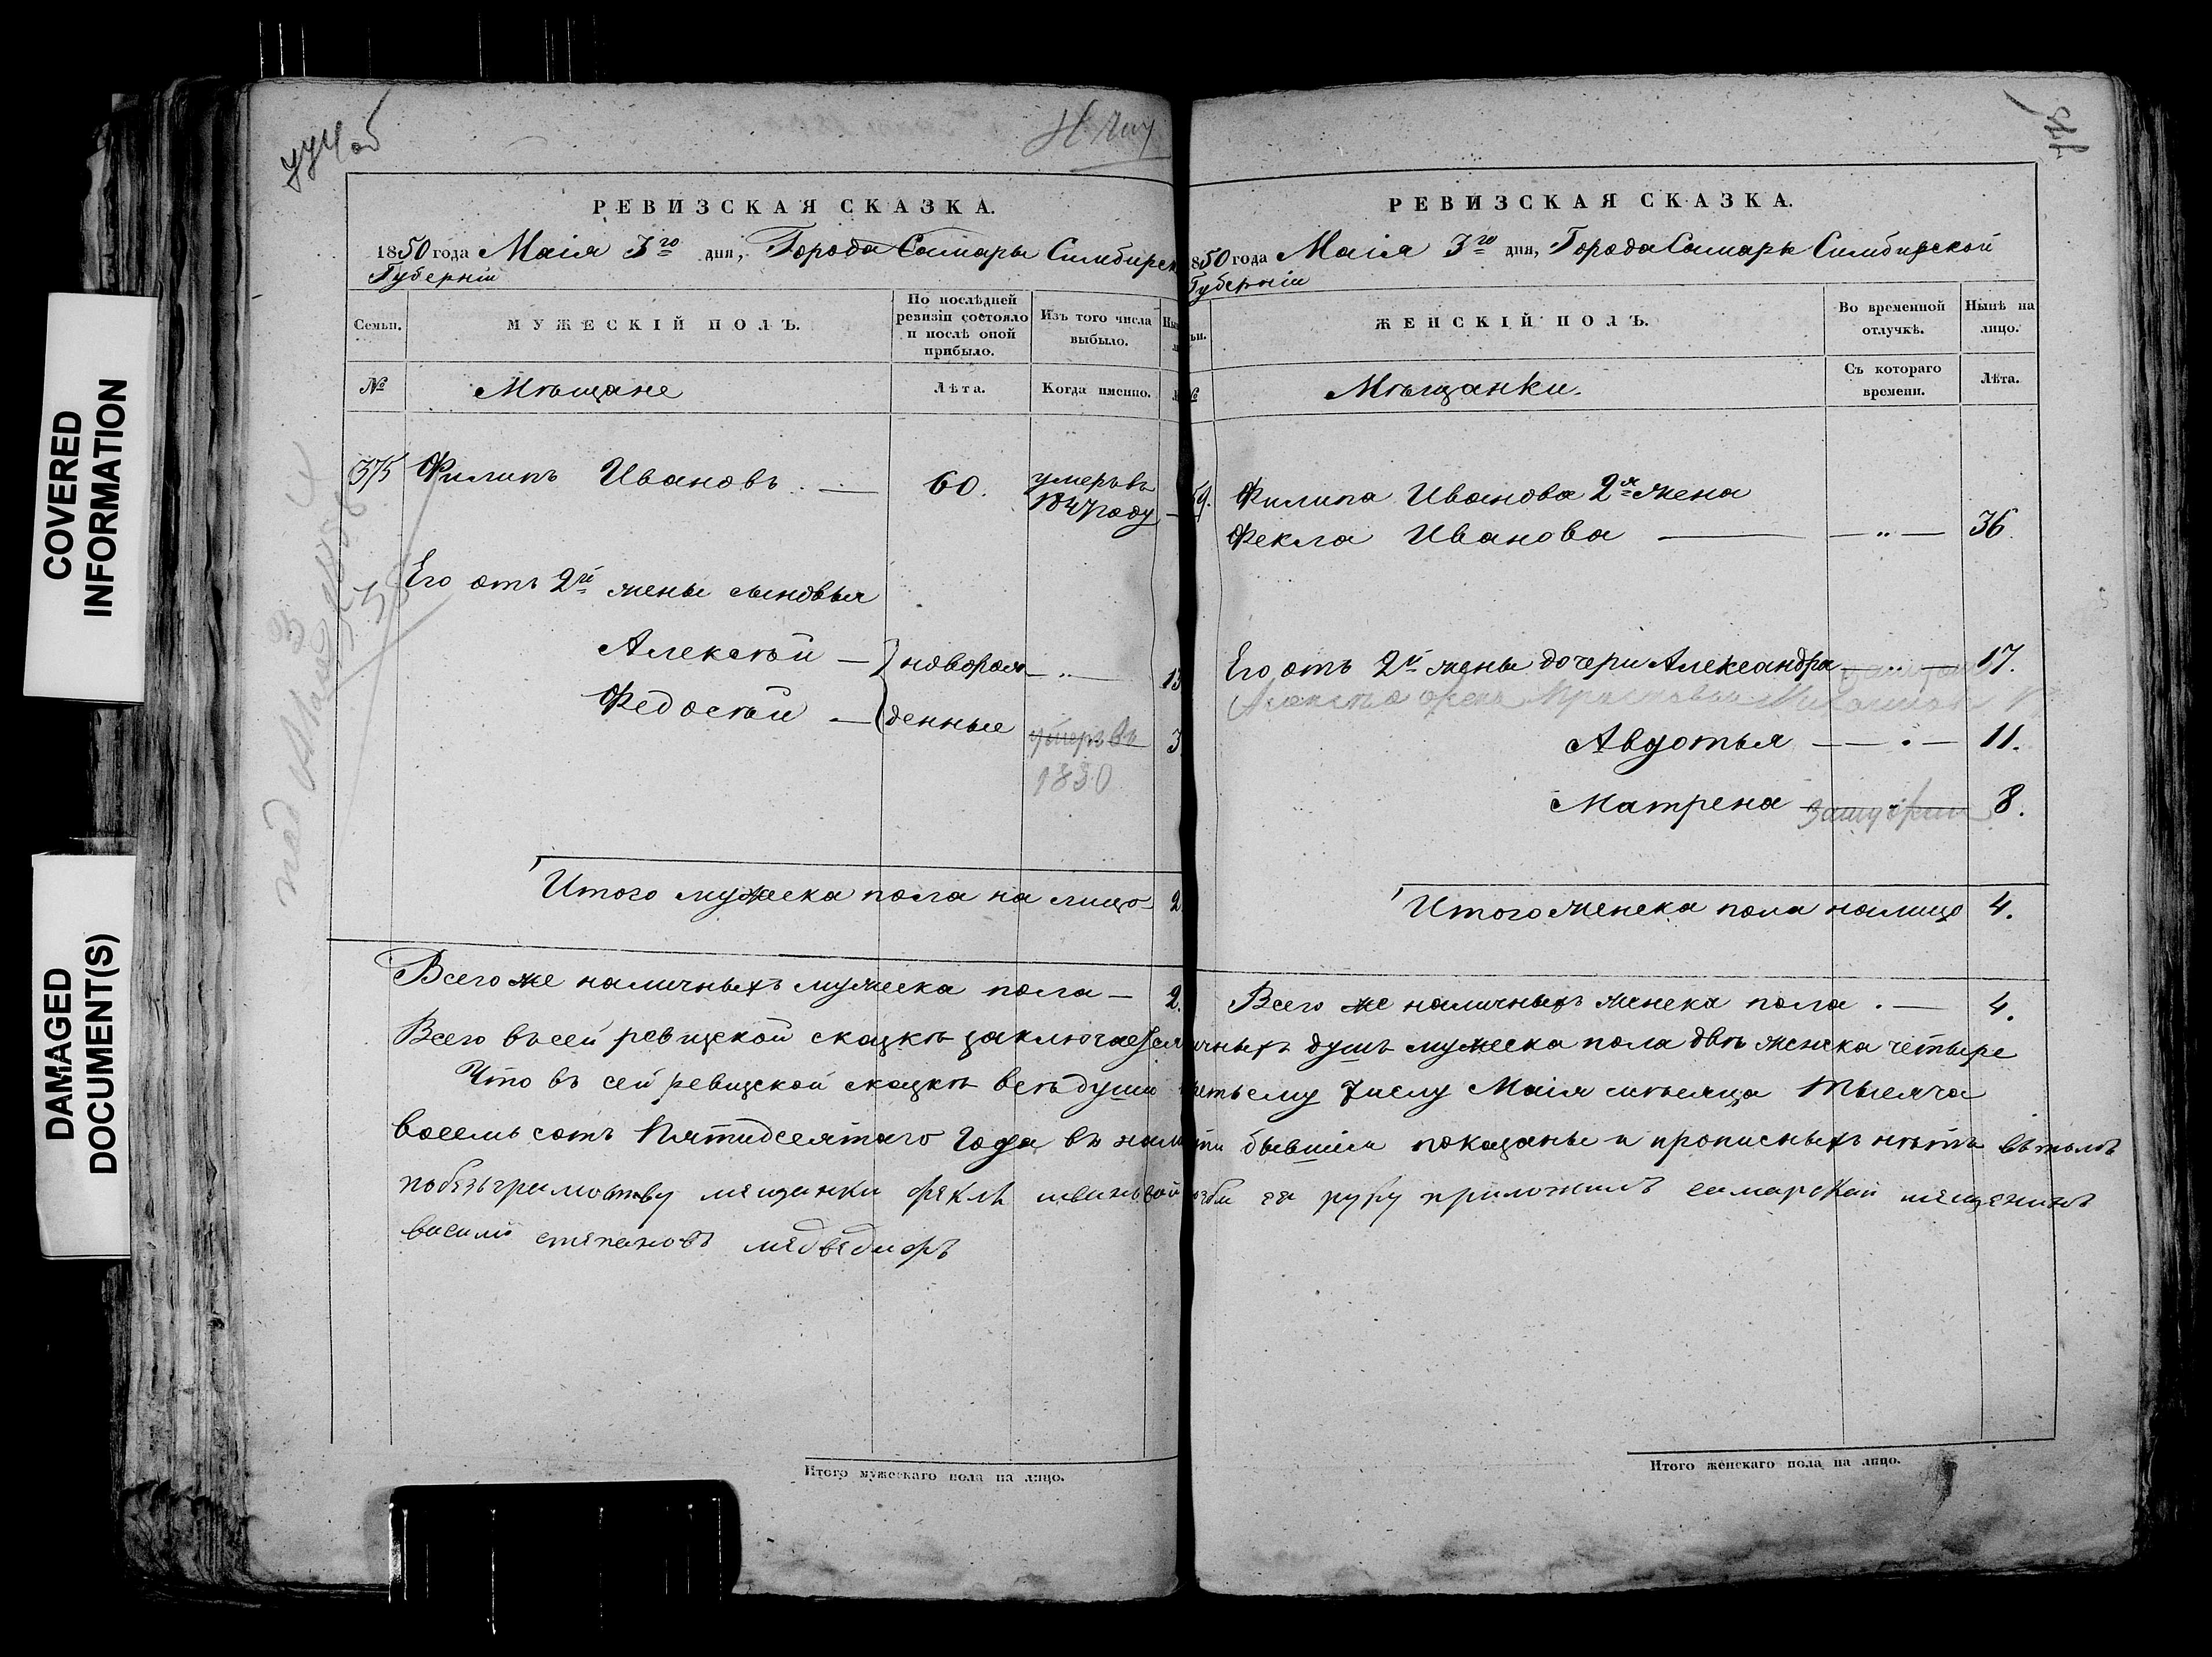 COVERED
INFORMATION
DAMAGED
DOCUMENT(S)
об
РЕВИЗСКАЯ СКАЗКА.
1850 года Маія 3го дня, Города Самары Симбирск
Губерніи
Семьи.
МУЖЕСКІЙ ПОЛЪ.
По послѣдней
ревизіи состояло
и послѣ оной
прибыло.
Изъ того числа
выбыло.
№
Мѣщане
Лѣта.
Когда именно.
375 Филипъ Ивановъ. — 60. умеръ въ
1847 году
Его отъ 2й жены сыновья
Алексѣй — } новорож 13
Федосѣй — } денные умеръ въ 3
1850
Итого мужеска пола на лицо 2
Всего же наличныхъ мужеска пола — 2.
РЕВИЗСКАЯ СКАЗКА.
850 года Маія 3го дня, Города Самары Симбирской
Губерніи
ьи.
ЖЕНСКІЙ ПОЛЪ.
Во временной
отлучкѣ.
Нынѣ на
лицо.
№
Мѣщанки.
Съ котораго
времени.
Лѣта.
Филипа Иванова 2я жена
Фекла Иванова — — „ — 36.
Его отъ 2й жены дочери Александра — „ — 17.
Авдотья — — „ — 11.
Матрена замужем 8.
Итого женска пола налицо 4.
Всего же наличныхъ женска пола. — 4.
Всего въ сей ревизской сказкѣ заключается ичныхъ душъ мужеска пола двѣ женска четыре
Что въ сей ревизской сказкѣ всѣ души етьему числу Маія мѣсяца тысяча
восемь сотъ пятидесятаго года въ нали ти бывшіи показаны и прописныхъ нѣтъ въ томъ
побезъграмотству мещанки феклы ивановой озбы ея руку приложилъ самарской мещенинъ
василий степановъ
Итого мужескаго пола на лицо.
Итого женскаго пола на лицо.